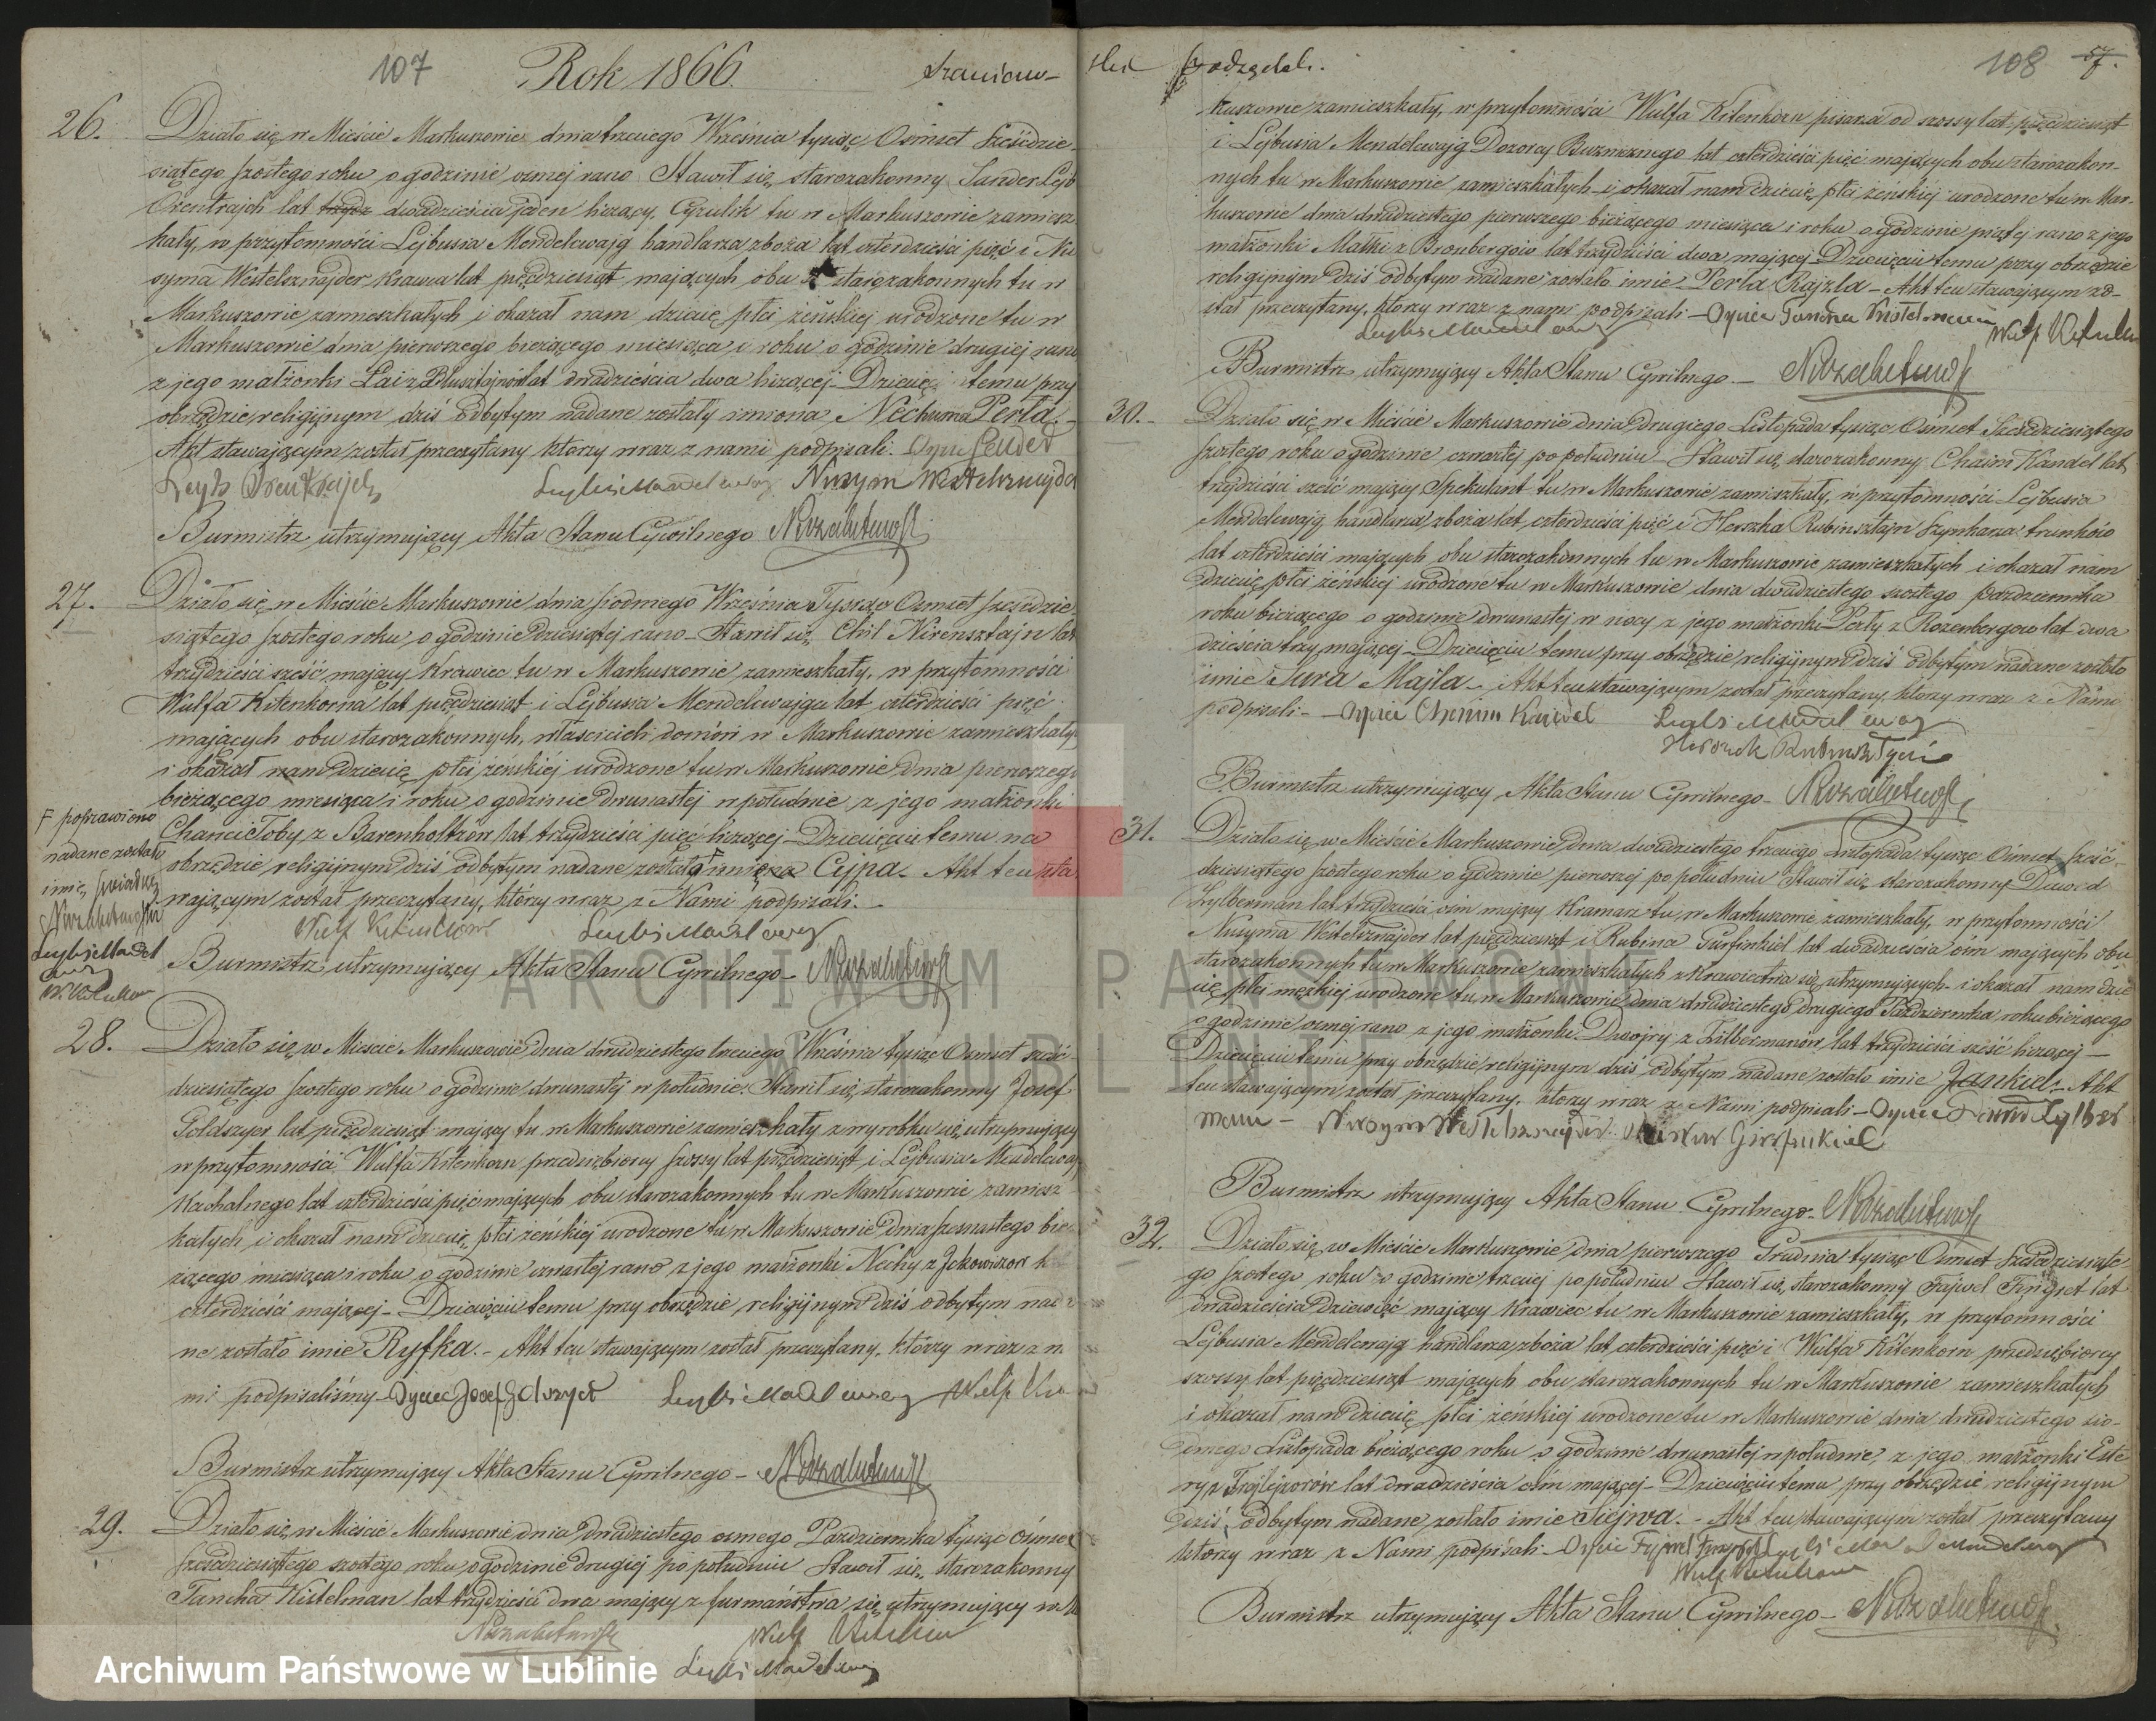 107
Rok 1866.
26. Działo się w Mieście Markuszowie dnia trzeciego Września tysiąc Ośmset Sześćdzie-
siątego szóstego roku o godzinie ósmej rano Stawił się starozakonny Sander Lejb
lat trzydz dwadzieścia jeden liczący, Cyrulik tu w Markuszowie zamiesz
kały, w przytomności Lejbusia Mendelewajg handlarza zboża lat czterdzieści pięć i Nu
syma Westelsznajder Krawca lat pięćdziesiąt mających obu starozakonnych tu w
Markuszowie zamieszkałych i okazał nam dziecię płci żeńskiej urodzone tu w
Markuszowie dnia pierwszego bieżącego miesiąca i roku o godzinie drugiej rano
z jego małżonki Łai z lat dwadzieścia dwa liczącej – Dziecięciu temu przy
obrzędzie religijnym dziś odbytym nadane zostały imiona Nechuma Perla. –
Akt stawającym został przeczytany którzy wraz z nami podpisali.
Nusym Westelsznajder
Burmistrz utrzymujący Akta Stanu Cywilnego
27. Działo się w Mieście Markuszowie dnia siódmego Września Tysiąc Ośmset sześćdzie
siątego szóstego roku o godzinie dziesiątej rano – Stawił się Chil Nirensztajn lat
trzydzieści sześć mający Krawiec tu w Markuszowie zamieszkały, w przytomności
Wulfa Kitenkorna lat pięćdziesiąt i Lejbusia Mendelewajga lat czterdzieści pięć
mających obu starozakonnych, właścicieli domów w Markuszowie zamieszkały
i okazał nam dziecię płci żeńskiej urodzone tu w Markuszowie dnia pierwszego
bieżącego miesiąca i roku o godzinie dwunastej w południe z jego małżonki
Chanci Toby z Barenholtzów lat trzydzieści pięć liczącej – Dziecięciu temu na
obrzędzie religijnym dziś odbytym nadane zostało imiona Cejpa. Akt ten sta
wającym został przeczytany, którzy wraz z Nami podpisali. –
F poprawiono
nadane zostało
imie,
Burmistrz utrzymujący Akta Stanu Cywilnego –
28. Działo się w Mieście Markuszowie dnia dwudziestego trzeciego Września tysiąc Ośmset sześć
dziesiątego szóstego roku o godzinie dwunastej w południe. Stawił się starozakonny Josef
Goldszyer lat pięćdziesiąt mający tu w Markuszowie zamieszkały z wyrobku się utrzymujący
w przytomności Wulfa Kitenkorn przedsiębiorcy szossy lat pięćdziesiąt i Lejbusia Mendelewajg
Kachalnego lat czterdzieści pięć mających obu starozakonnych tu w Markuszowie zamiesz
kałych i okazał nam dziecię płci żeńskiej urodzone tu w Markuszowie dnia szesnastego bie
żącego miesiąca i roku o godzinie czwartej rano z jego małżonki Nechy z Jckowiczów
czterdzieści mającej – Dziecięciu temu przy obrzędzie religijnym dziś odbytym nada
ne zostało imie Ryfka. – Akt ten stawającym został przeczytany, którzy wraz z n
mi podpisaliśmy –
Burmistrz utrzymujący Akta Stanu Cywilnego –
29. Działo się w Mieście Markuszowie dnia dwudziestego ósmego Października tysiąc ośmset
sześćdziesiątego szóstego roku o godzinie drugiej po południu Stawił się starozakonny
Tancha Kistelman lat trzydzieści dwa mający z furmaństwa się utrzymujący w Ma
108 57.
kuszowie zamieszkały, w przytomności Wulfa Kitenkorn pisarza od szossy lat pięćdziesiąt
i Lejbusia Mendelewajg Dozorcy Buzniczego lat czterdzieści pięć mających obu starozakon-
nych tu w Markuszowie zamieszkałych i okazał nam dziecię płci żeńskiej urodzone tu w Mar-
kuszowie dnia dwudziestego pierwszego bieżącego miesiąca i roku o godzinie piątej rano z jego
małżonki Małki z Bronbergów lat trzydzieści dwa mającej – Dziecięciu temu przy obrzędzie
religijnym dziś odbytym nadane zostało imie Perla Rajzla – Akt ten stawającym zo-
stał przeczytany, którzy wraz z nami podpisali –
Burmistrz utrzymujący Akta Stanu Cywilnego –
30. – Działo się w Mieście Markuszowie dnia drugiego Listopada tysiąc Ośmset Sześćdziesiątego
szóstego roku o godzinie czwartej po południu Stawił się starozakonny Chaim Kandel lat
trzydzieści sześć mający Spekulant tu w Markuszowie zamieszkały, w przytomności Lejbusia
Mendelewajg handlarza zboża lat czterdzieści pięć i Herszka Rubinsztajn szynkarza trunków
lat czterdzieści mających obu starozakonnych tu w Markuszowie zamieszkałych i okazał nam
dziecię płci żeńskiej urodzone tu w Markuszowie dnia dwudziestego szóstego października
roku bieżącego o godzinie dwunastej w nocy z jego małżonki Perły z Rozenbergow lat dwa
dzieścia trzy mającej – Dziecięciu temu przy obrzędzie religijnym dziś odbytym nadane zostało
imie Sura Majla – Akt ten stawającym został przeczytany, którzy wraz z Nami
podpisali –
Burmistrz utrzymujący Akta Stanu Cywilnego –
31. Działo się w Mieście Markuszowie dnia dwudziestego trzeciego Listopada tysiąc Ośmset sześć-
dziesiątego szóstego roku o godzinie pierwszej po południu Stawił się starozakonny Dawod
Zylberman lat trzydzieści ośm mający Kramarz tu w Markuszowie zamieszkały, w przytomności
Nusyma Westelsznajder lat pięćdziesiąt i Rubina Gurfinkiel lat dwadzieścia ośm mających obu
starozakonnych tu w Markuszowie zamieszkałych z Krawiectwa się utrzymujących – i okazał nam dzie
cię płci męzkiej urodzone tu w Markuszowie dnia dwudziestego drugiego Października roku bieżącego
o godzinie ósmej rano z jego małżonki Dwojry z Zilbermanów lat trzydzieści sześć liczącej –
Dziecięciu temu przy obrzędzie religijnym dziś odbytym nadane zostało imie Jankiel – Akt
ten stawającym został przeczytany, którzy wraz z Nami podpisali –
Burmistrz utrzymujący Akta Stanu Cywilnego –
32. Działo się w Mieście Markuszowie dnia pierwszego Grudnia tysiąc Ośmset Sześćdziesiąte
go szóstego roku o godzinie trzeciej po południu Stawił się starozakonny Fajwel Fingret lat
dwadzieścia Dziewięć mający Krawiec tu w Markuszowie zamieszkały, w przytomności
Lejbusia Mendelewajg handlarza zboża lat czterdzieści pięć i Wulfa Kitenkorn przedsiębiorcy
szossy lat pięćdziesiąt mających obu starozakonnych tu w Markuszowie zamieszkałych
i okazał nam dziecię płci żeńskiej urodzone tu w Markuszowie dnia dwudziestego sió-
dmego Listopada bieżącego roku o godzinie dwunastej w południe, z jego małżonki Este
ry z lat dwadzieścia ośm mającej – Dziecięciu temu przy obrzędzie religijnym
dziś odbytym nadane zostało imie Siejwa. – Akt ten stawającym został przeczytany
którzy wraz z Nami podpisali –
Burmistrz utrzymujący Akta Stanu Cywilnego –
ARCHIWUM PAŃSTWOWE
W LUBLINIE
Archiwum Państwowe w Lublinie